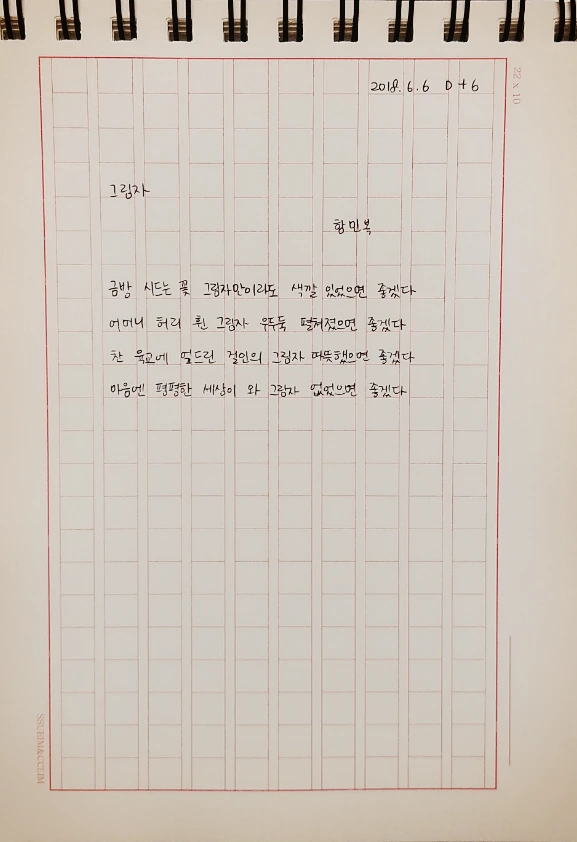 2018. 6. 6 D+6
22 x 10
그림자
함민복
금방 시드는 꽃 그림자만이라도 색깔 있었으면 좋겠다
어머니 허리 휜 그림자 우두둑 펼쳐졌으면 좋겠다
찬 육교에 엎드린 걸인의 그림자 따뜻했으면 좋겠다
마음엔 평평한 세상이 와 그림자 없었으면 좋겠다